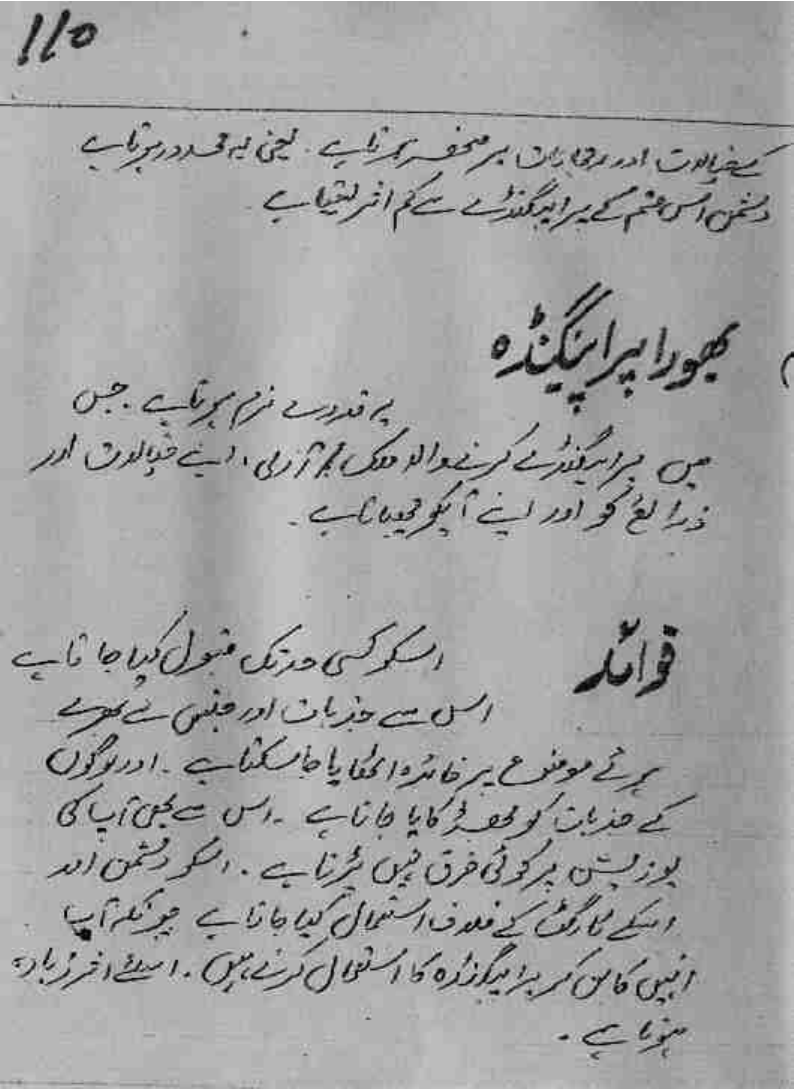 110
کے خیالات اور رجحانات پر منحصر ہوتا ہے . یعنی یہ محدود ہوتا ہے
دشمن اس قسم کے پراپیگنڈے سے کم اثر لیتا ہے
بھورا پراپیگنڈہ
یہ قدرے نرم ہوتا ہے . جس
میں پراپیگنڈے کرنے والا ملک / آدمی ، اپنے خیالات اور
ذرائع کو اور اپنے آپکو چھپاتا ہے .
فوائد
اسکو کسی حد تک قبول کیا جاتا ہے
اس سے جذبات اور جنسی سے بھرے
ہوئے موضوع پر فائدہ اٹھایا جا سکتا ہے . اور لوگوں
کے جذبات کو بھڑکایا جاتا ہے . اس سے بھی آپ کی
پوزیشن پر کوئی فرق نہیں پڑتا ہے . اسکو دشمن اور
اسکے ٹارگٹ کے خلاف استعمال کیا جاتا ہے چونکہ آپ
انہیں کا بن کر پراپیگنڈہ کا استعمال کرتے ہیں . اسلئے اثر زیادہ
ہوتا ہے .